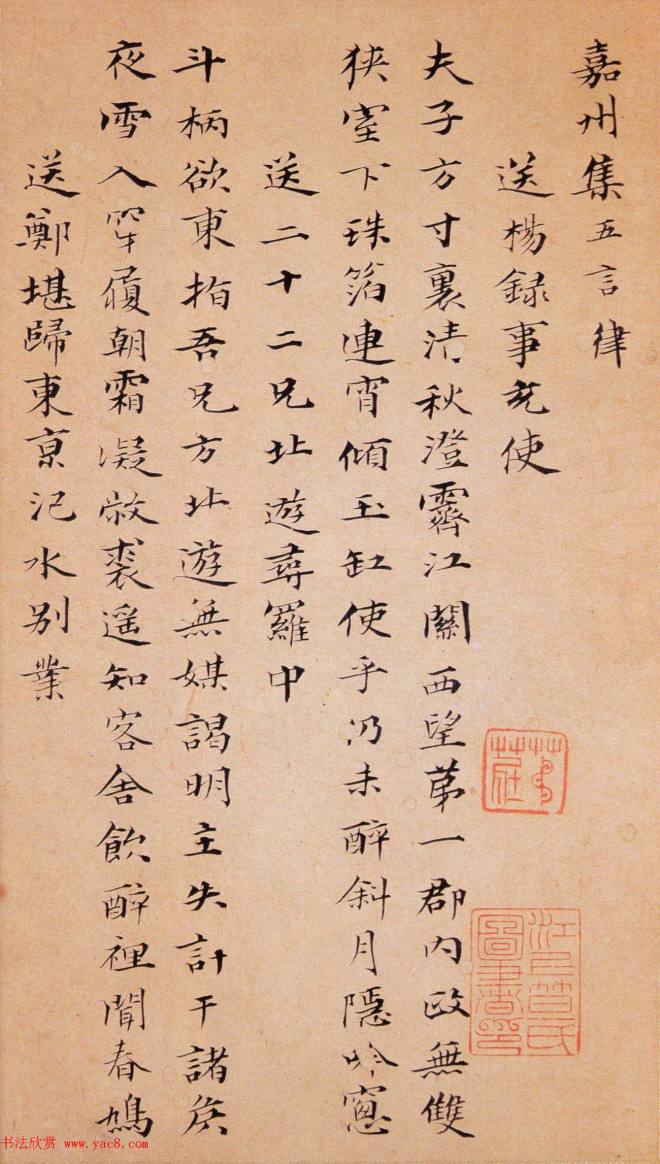 嘉州集五言律
送楊録事充使
夫子方寸裏清秋澄霽江關西望第一郡內政無雙
狹室下珠箔連宵傾玉缸使乎仍未醉斜月隱吟窓
送二十二兄北遊尋羅中
斗柄欲東指吾兄方北遊無媒謁明主失計干諸侯
夜雪入穿履朝霜凝敝裘遥知客舍飲醉裡聞春鳩
送鄭堪歸東京汜水别業
江上笪氏圖書印
书法欣赏 www.yac8.com